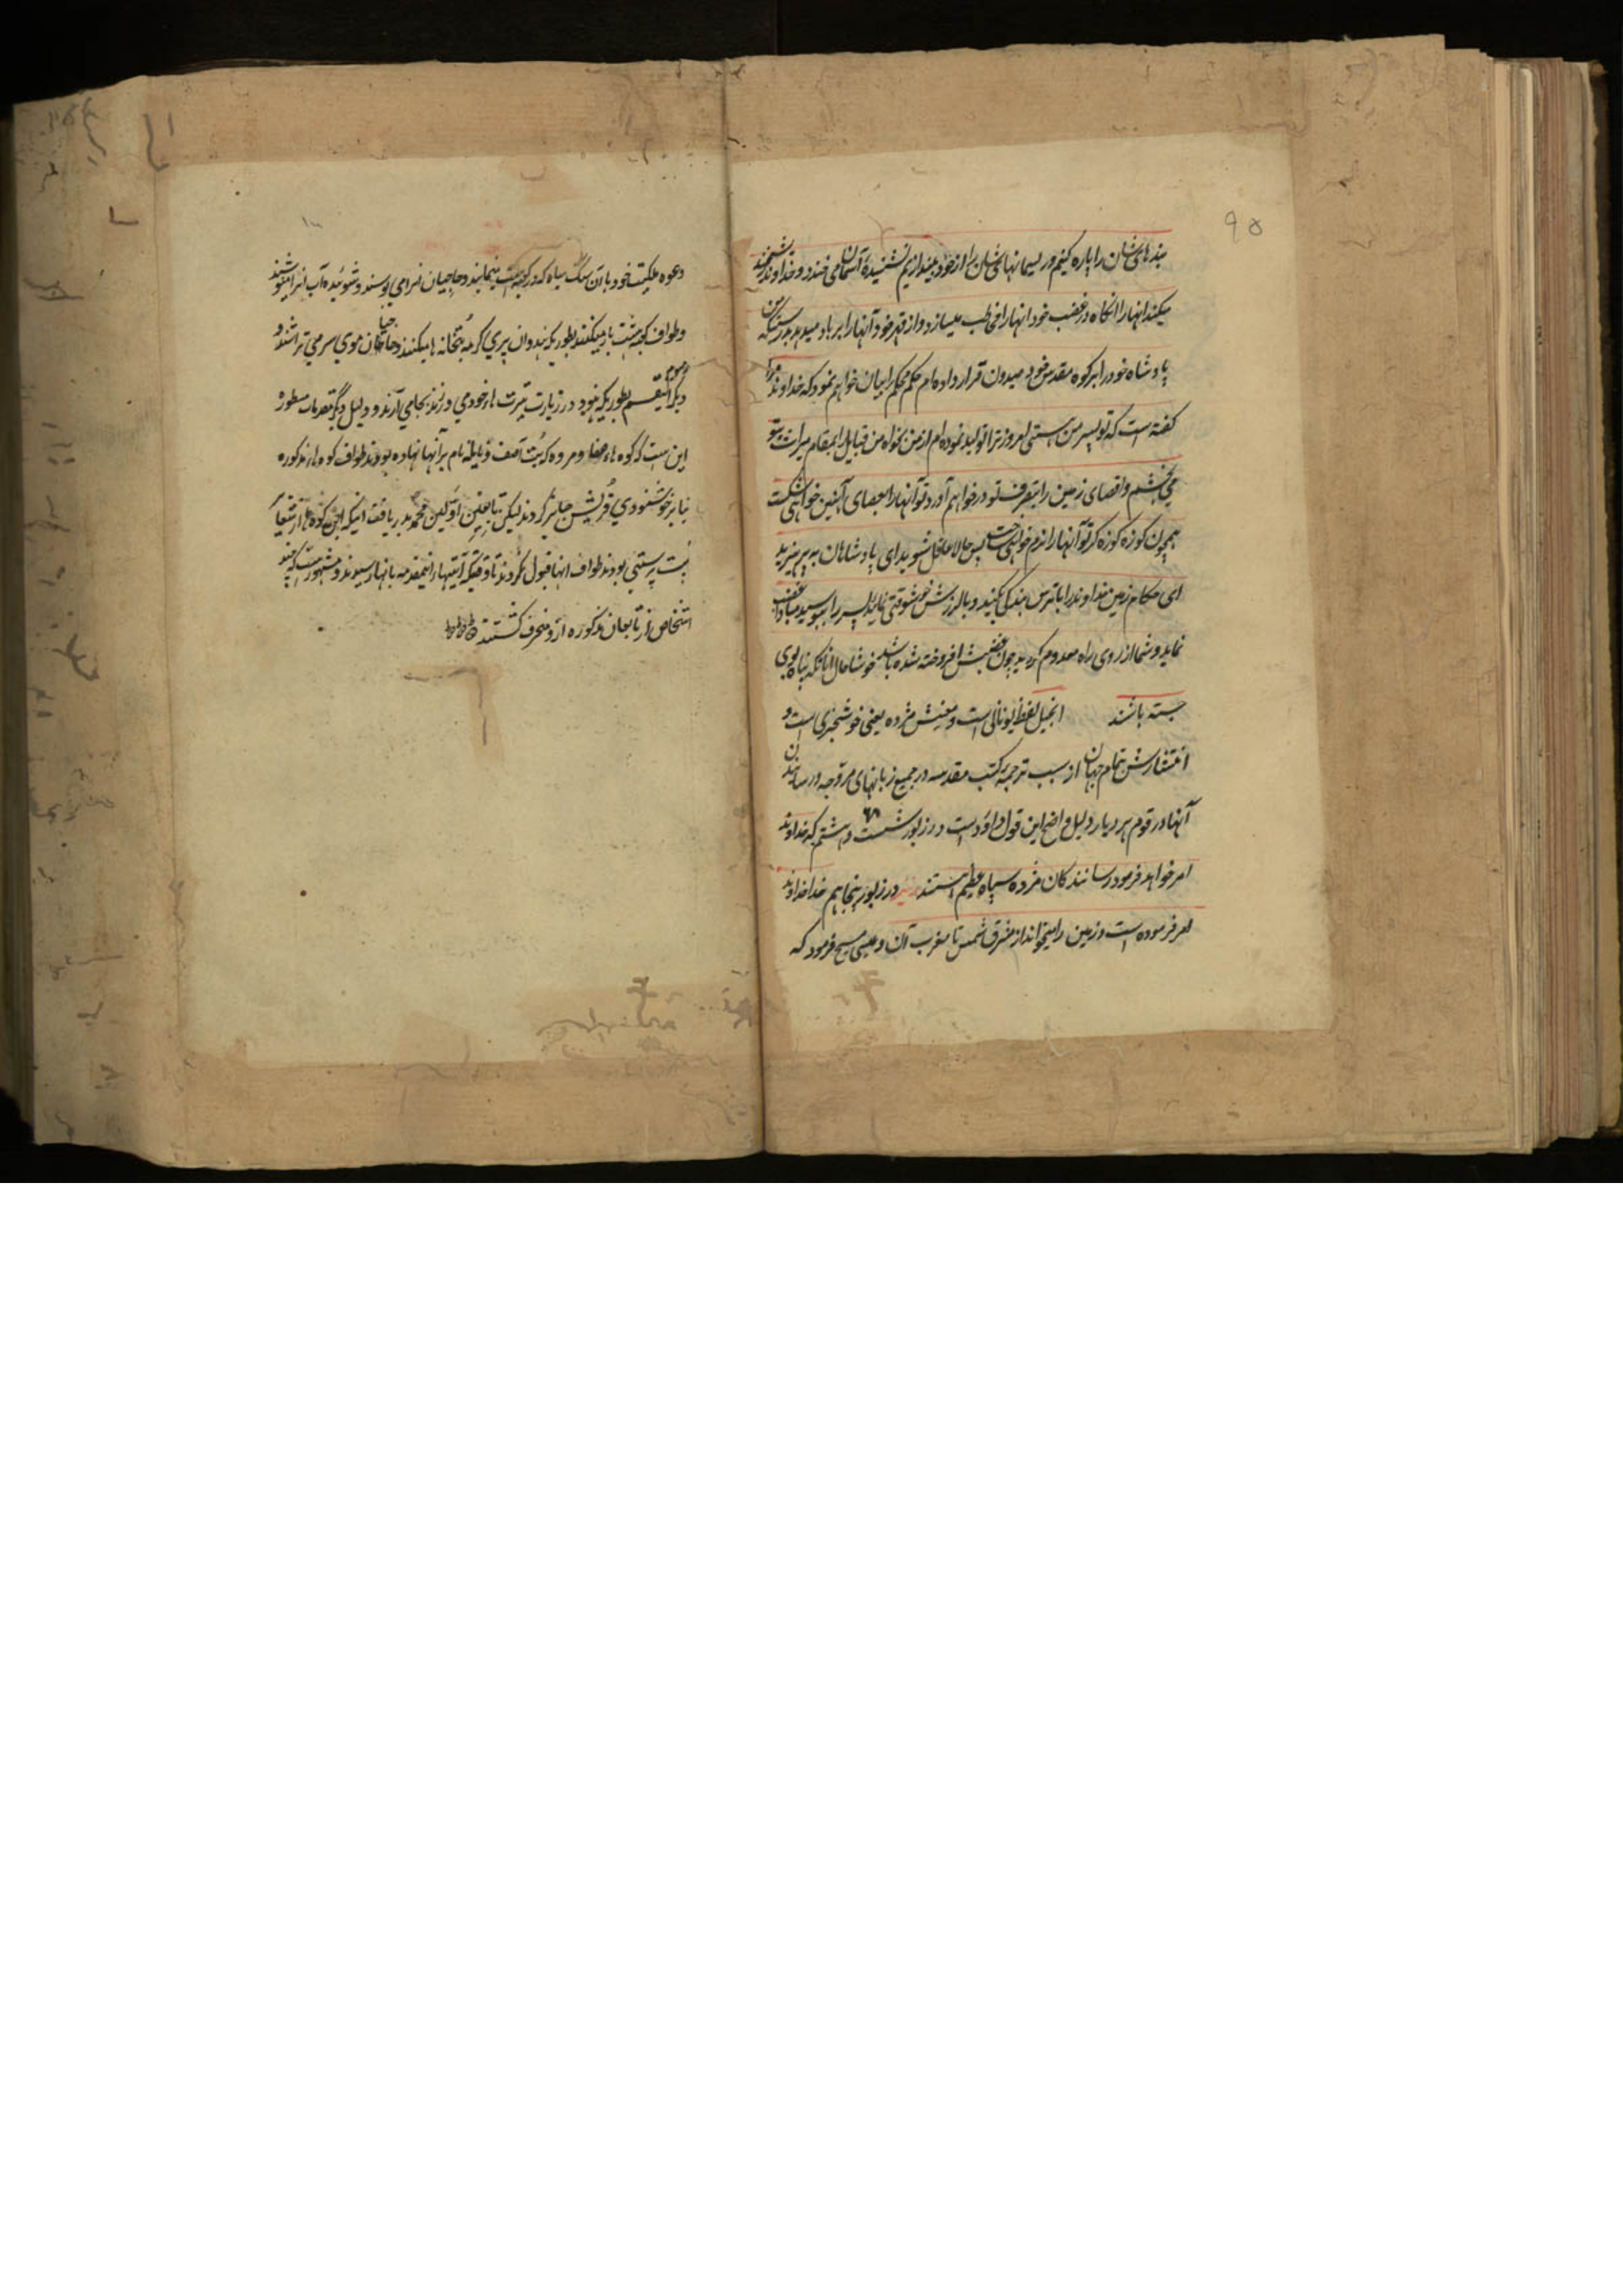 ۹۵
بندهای شان را پاره کنیم و ریسمانهای شان را از خود بیندازیم نشنیدهٔ آسمان می خندد و خداوند ریشخند
میکند انهارا انکاه در غضب خود انهارا مخاطب میسازد و از قهر خود آنهارا برباد میدهد بدرستیکه من
پادشاه خود را بر کوه مقدس خود صیهون قرار داده ام حکم محکم را بیان خواهم نمود که خداوند مرا
کفته است که تو پسر من هستی امروز ترا تولید نموده ام از من بخواه من قبایل را بمقام میراث بتو
می بخشم و اقصای زمین را بتصرف تو در خواهم آورد تو آنهارا بعصای آهنین خواهی شکست
همچون کوزه کوزه کر تو آنهارا نرم خواهی ساخت پس حالا عاقل شوید ای پادشاهان بپرهیزید
ای حکام زمین خداوند را با ترس بندکی بکنید و بالرزش خوشوقتی نمائید پسر را ببوسید مبادا غضب
نماید و شما از روی راه معدوم کردید چون غضبش افروخته شده باشد خوشا حال انانکه پناه بوی
جسته باشند انجیل لفظ یونانی است و معنیش مژده یعنی خوشخبری است و
انتشارش بتمام جهان از سبب ترجمهٔ کتب مقدسه در جمیع زبانهای مروجه و رسانیدن
آنها در قوم هر دیار دلیل واضح این قول داؤد است در زبور شصت و هشتم ۶۸ که خداوند
امر خواهد فرمود رسانندکان مژده سپاه عظیم هستند در زبور پنجاهم خدا خداوند
امر فرموده است و زمین را میخواند از مشرق شمس تا مغرب آن و عیسی مسیح فرمود که
۱۰۰
دعوه ملکیت خود با آن سنگ سیاه که در کعبه است مینمایند و حاجیان انرا می بوسند و شوئیده آب انرا مینوشند
و طواف کعبه هشت بار میکنند بطوریکه هندوان پیری کرمه بتخانه ها میکنند و حاجیان موی سر می تراشند و
رسوم دیگر اینقسم بطوریکه هنود در زیارت تیرت هاء خود می ورزند بجا می آرند و دلیل دیگر مقدمات مسطور
این است که کوه هاء صفا و مروه که بت آصف و نایله نام بر آنها نهاده بودند طواف کوه هاء مذکوره
بنابر خوشنودی قریش جایز کردند لیکن تابعین اولین محمد بدریافت اینکه این کوه ها از شعار
بت پرستی بودند طواف انها قبول نکردند تا وقتیکه آیتها در اینمقدمه بانها رسیدند و مشهور است که چند
اشخاص از تابعان مذکوره ازو منحرف کشتند